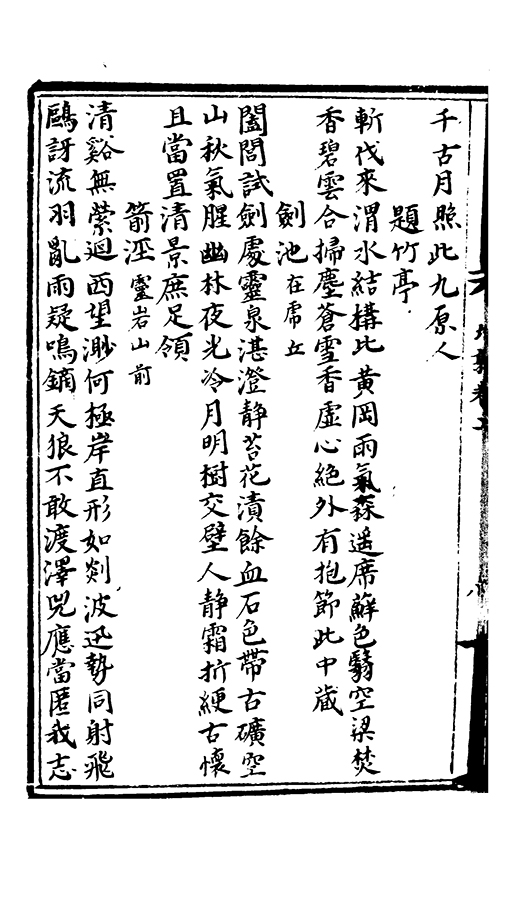 千古月照此九原人
題竹亭
斬伐來渭水結構比黃岡雨氣森遥席蘚色翳空梁焚
香碧雲合掃塵蒼雪香虛心絕外有抱節此中藏
劍池在虎丘
闔閭試劍處靈泉湛澄静苔花漬餘血石色帶古礦空
山秋氣腥幽林夜光冷月明樹交壁人静霜折綆古懷
且當置清景庶足領
箭涇靈岩山前
清谿無縈迴西望渺何極岸直形如剡波迅勢同射飛
鷗訝流羽亂雨疑鳴鏑天狼不敢渡澤兕應當匿我志